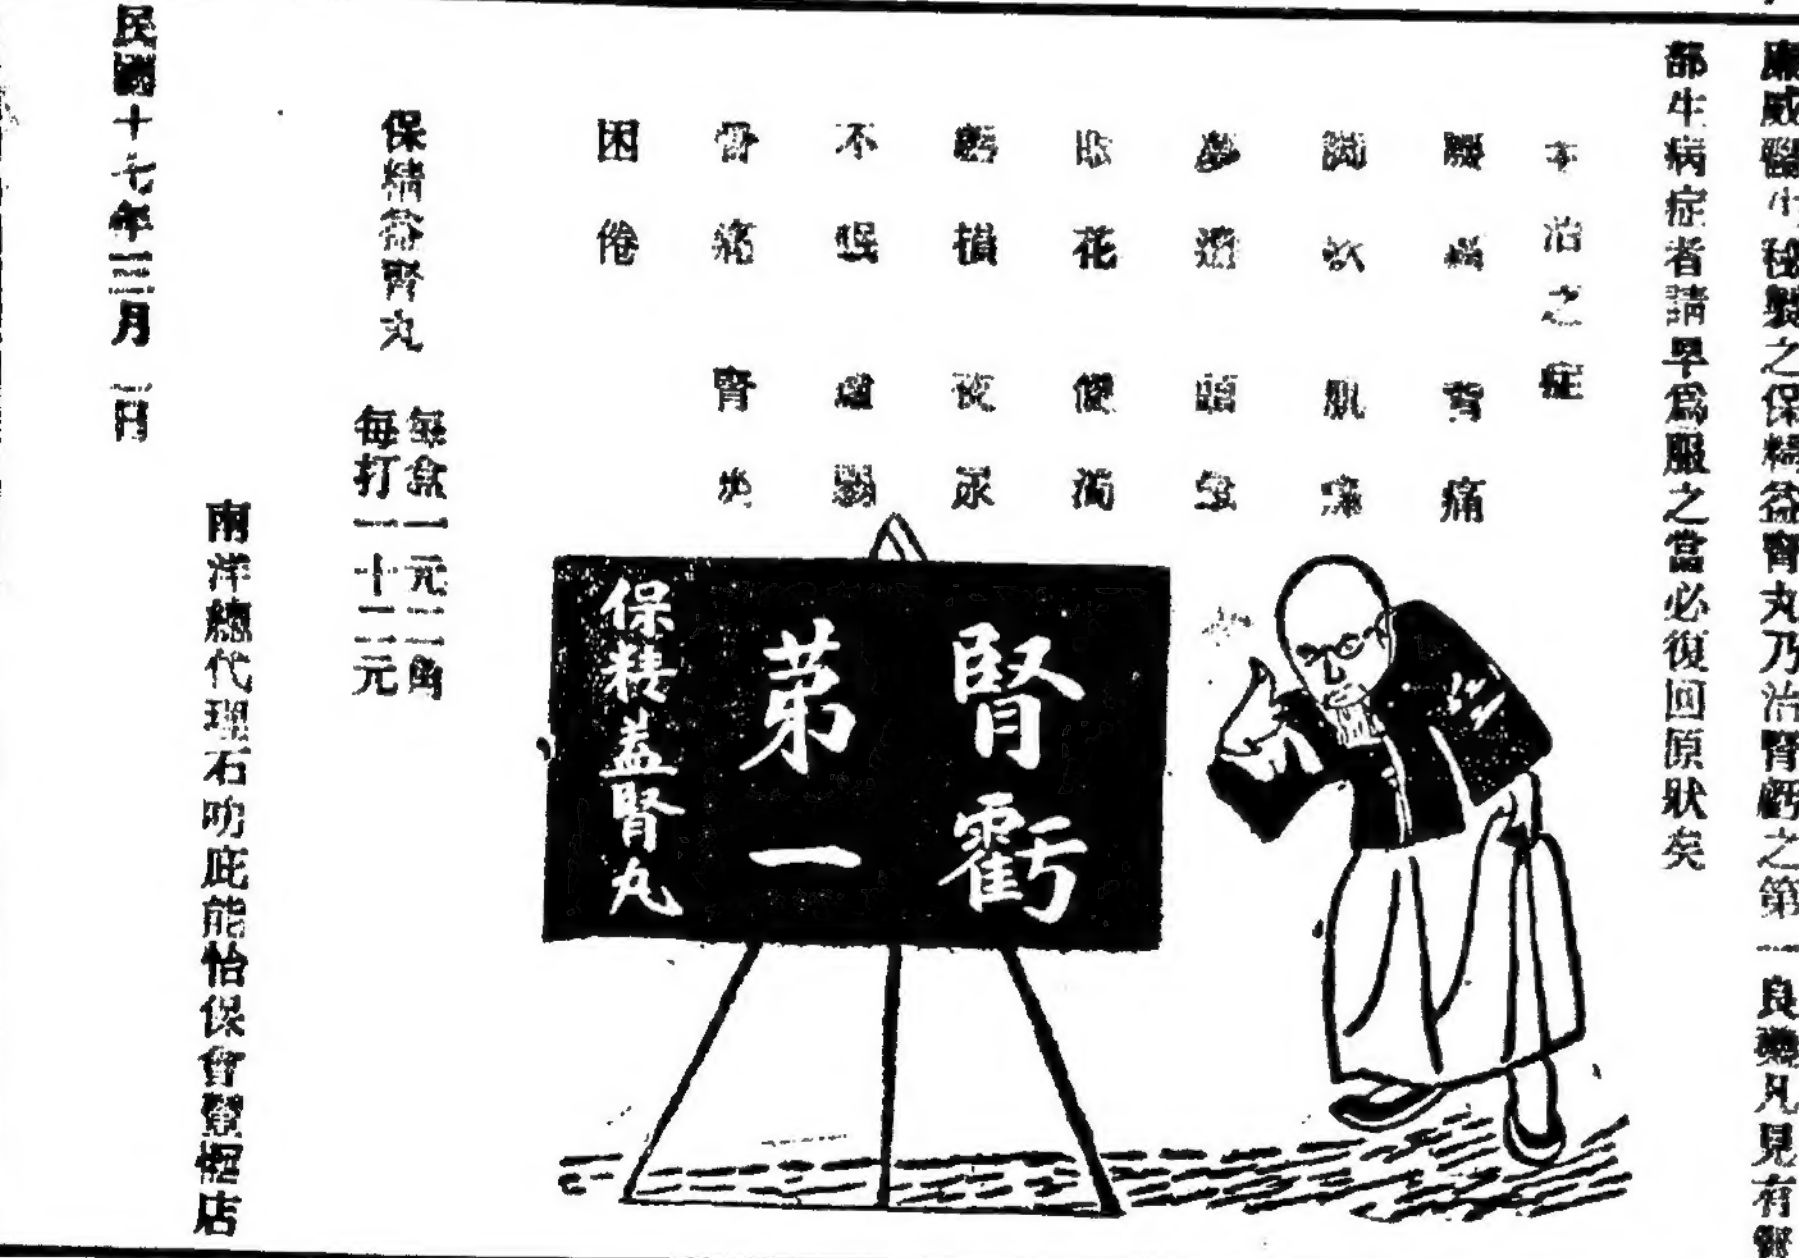 廉威醫生秘製之保精益腎丸乃治腎虧之第一良藥凡見有腎
部生病症者請早為服之當必復回原狀矣
本治之症
腰痛 背痛
脚軟 肌瘦
夢遺 頭暈
眼花 便濁
虧損 夜尿
不眠 虛弱
骨痛 腎
困倦
腎虧
第一
保精益腎丸
保精益腎丸
每盒一元二角
每打一十二元
南洋總代理石叻庇能怡保會
店
民國十七年三月一日